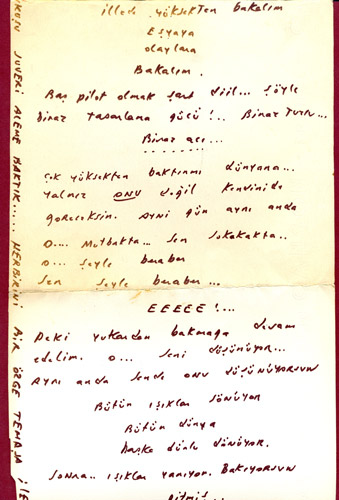 illede yüksekten bakalım
Eşyaya
olaylara
Bakalım.
Baş pilot olmak şart diil... şöyle
biraz tasarlama gücü!.. Biraz
Biraz acı...
çok yüksekten baktınmı dünyana...
yalnız onu değil kendinide
göreceksin. Ayni gün aynı anda
o.... mutbakta... sen sokakakta..
o... şeyle beraber
sen şeyle beraber...
EEEEE!...
Peki yukardan bakmaga devam
edelim. O... seni düşünüyor...
Aynı anda sende onu düşünüyorsun
Bütün ışıklar sönüyor
Bütün dünya
başka dönüyor.
Sonra.. ışıklar yanıyor. Bakıyorsun
Bitmiş...
ALEME BAKTIK.... HERBİRİNİ BİR TEMAŞA İLE